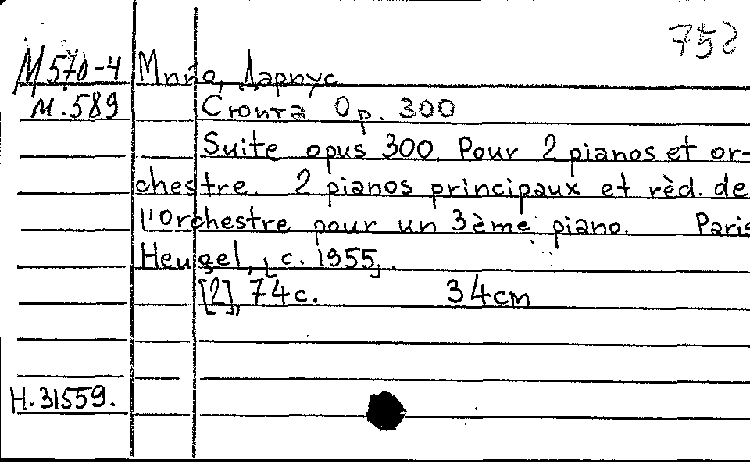 752
М570-4 Мийо, Дариус
М.589 Сюита Op. 300
Suite opus 300. Pour 2 pianos et or-
chestre. 2 pianos principaux et rèd. de
l'orchestre pour un 3ème piano. Paris
Heugel, [c. 1955].
[2], 74 c. 34 cm
Н.31559.